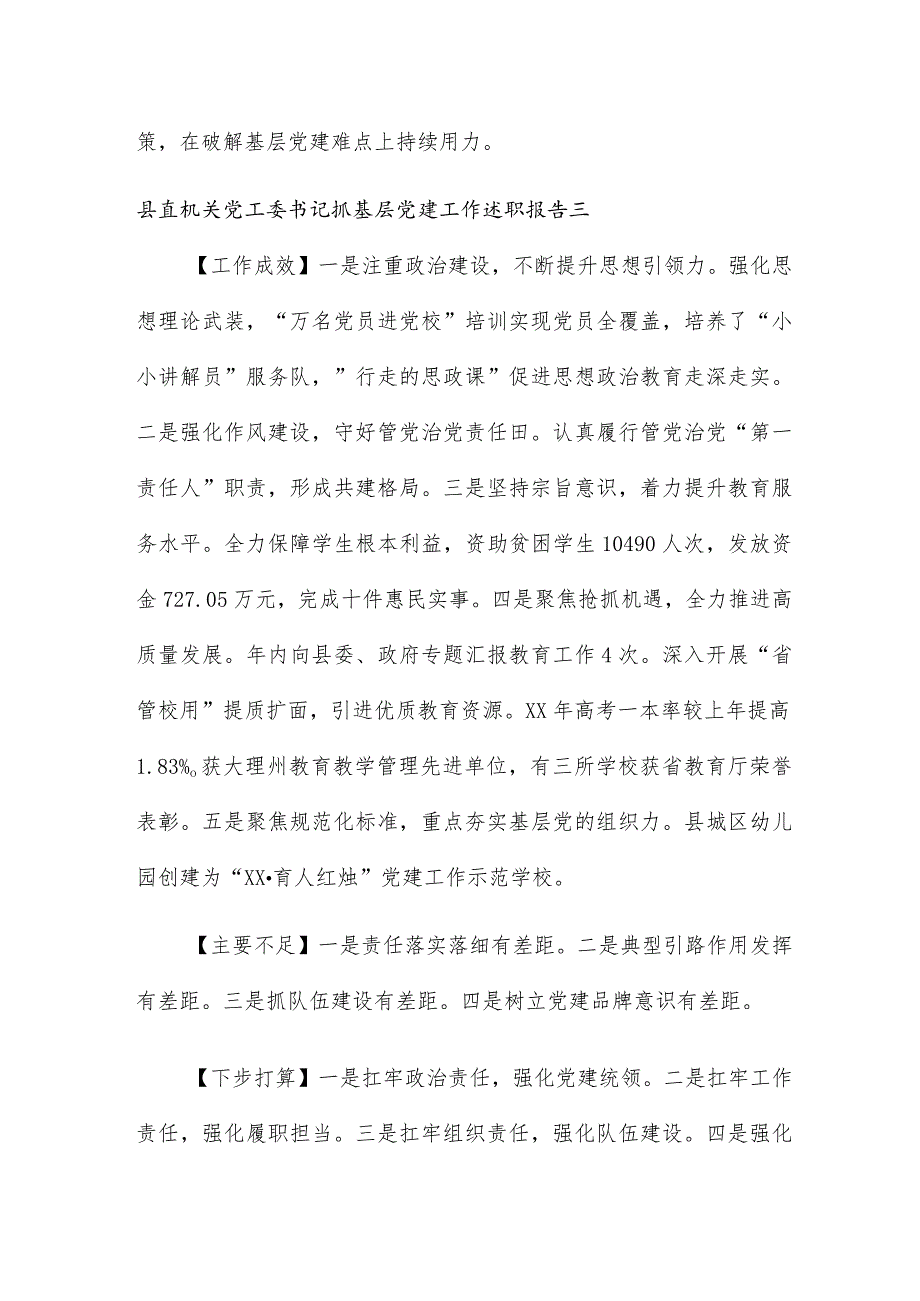 策，在破解基层党建难点上持续用力。
县直机关党工委书记抓基层党建工作述职报告三
【工作成效】一是注重政治建设，不断提升思想引领力。强化思
想理论武装，“万名党员进党校”培训实现党员全覆盖，培养了“小
小讲解员”服务队，”行走的思政课”促进思想政治教育走深走实。
二是强化作风建设，守好管党治党责任田。认真履行管党治党“第一
责任人”职责，形成共建格局。三是坚持宗旨意识，着力提升教育服
务水平。全力保障学生根本利益，资助贫困学生10490人次，发放资
金727.05万元，完成十件惠民实事。四是聚焦抢抓机遇，全力推进高
质量发展。年内向县委、政府专题汇报教育工作4次。深入开展“省
管校用”提质扩面，引进优质教育资源。XX年高考一本率较上年提高
1.83%。获大理州教育教学管理先进单位，有三所学校获省教育厅荣誉
表彰。五是聚焦规范化标准，重点夯实基层党的组织力。县城区幼儿
园创建为“XX•育人红烛”党建工作示范学校。
【主要不足】一是责任落实落细有差距。二是典型引路作用发挥
有差距。三是抓队伍建设有差距。四是树立党建品牌意识有差距。
【下步打算】一是扛牢政治责任，强化党建统领。二是扛牢工作
责任，强化履职担当。三是扛牢组织责任，强化队伍建设。四是强化